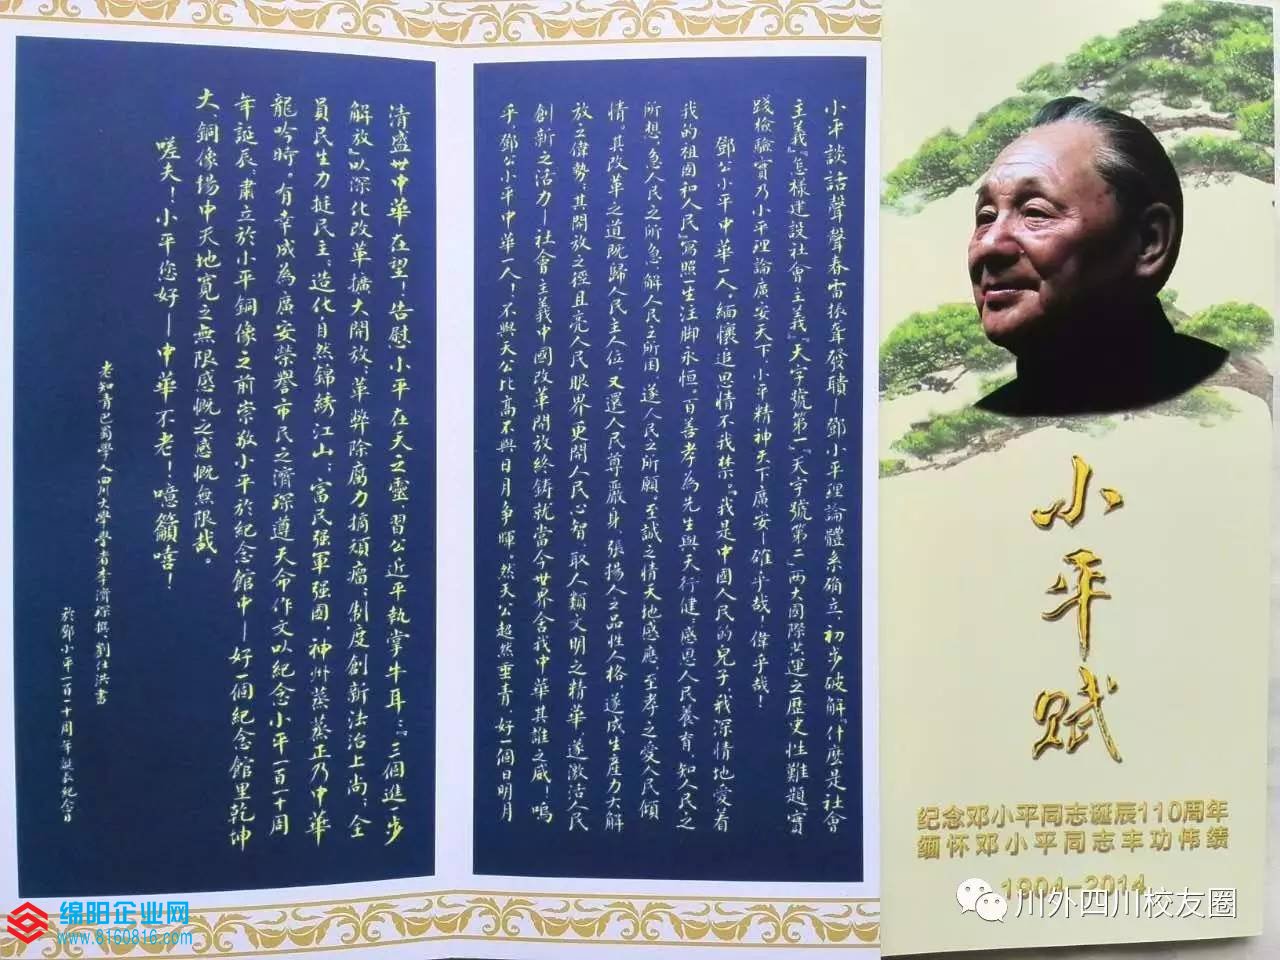 小平談話聲聲春雷振聾發聵—鄧小平理論體系确立，初步破解『什麼是社會
主義』『怎樣建設社會主義』『天字號第一』『天字號第二』兩大國際共運之歷史性難題。實
踐檢驗實乃小平理論廣安天下，小平精神天下廣安—雄乎哉！偉乎哉！
鄧公小平中華一人。緬懷追思情不我禁。『我是中國人民的兒子；我深情地愛着
我的祖國和人民』寫照一生注脚永恒。百善孝為先生與天行健；感恩人民養育，知人民之
所想，急人民之所急，解人民之所困，遂人民之所願，至誠之情天地感應，至孝之愛人民傾
情。其改革之道既歸人民主人位，又還人民尊嚴身，張揚人之品性人格，遂成生産力大解
放之偉勢；其開放之徑且亮人民眼界更開人民心智，取人類文明之精華，遂激活人民
創新之活力—社會主義中國改革開放終鑄就當今世界舍我中華其誰之威！嗚
乎，鄧公小平中華一人！不與天公比高不與日月争輝，然天公超然垂青，好一個日明月
清盛世中華在望！告慰小平在天之靈，習公近平執掌牛耳：『三個進一步
解放』以深化改革擴大開放，革弊除腐力摘頑瘤；制度創新法治上尚；全
員民生力挺民主；造化自然錦綉江山；富民强軍强國，神州蒸蒸正乃中華
龍吟時。有幸成為廣安榮譽市民之濟琛遵天命作文以紀念小平一百一十周
年誕辰，肅立於小平銅像之前崇敬小平於紀念館中—好一個紀念館里乾坤
大，銅像場中天地寬之無限感慨之感慨無限哉。
嗟夫！小平您好—中華不老！噫籲嘻！
老知青巴蜀學人四川大學學者李濟琛撰，劉仕洪書
於鄧小平一百一十周年誕辰紀念日
小平赋
纪念邓小平同志诞辰110周年
缅怀邓小平同志丰功伟绩
1904-2014
川外四川校友圈
绵阳企业网
www.8160816.com